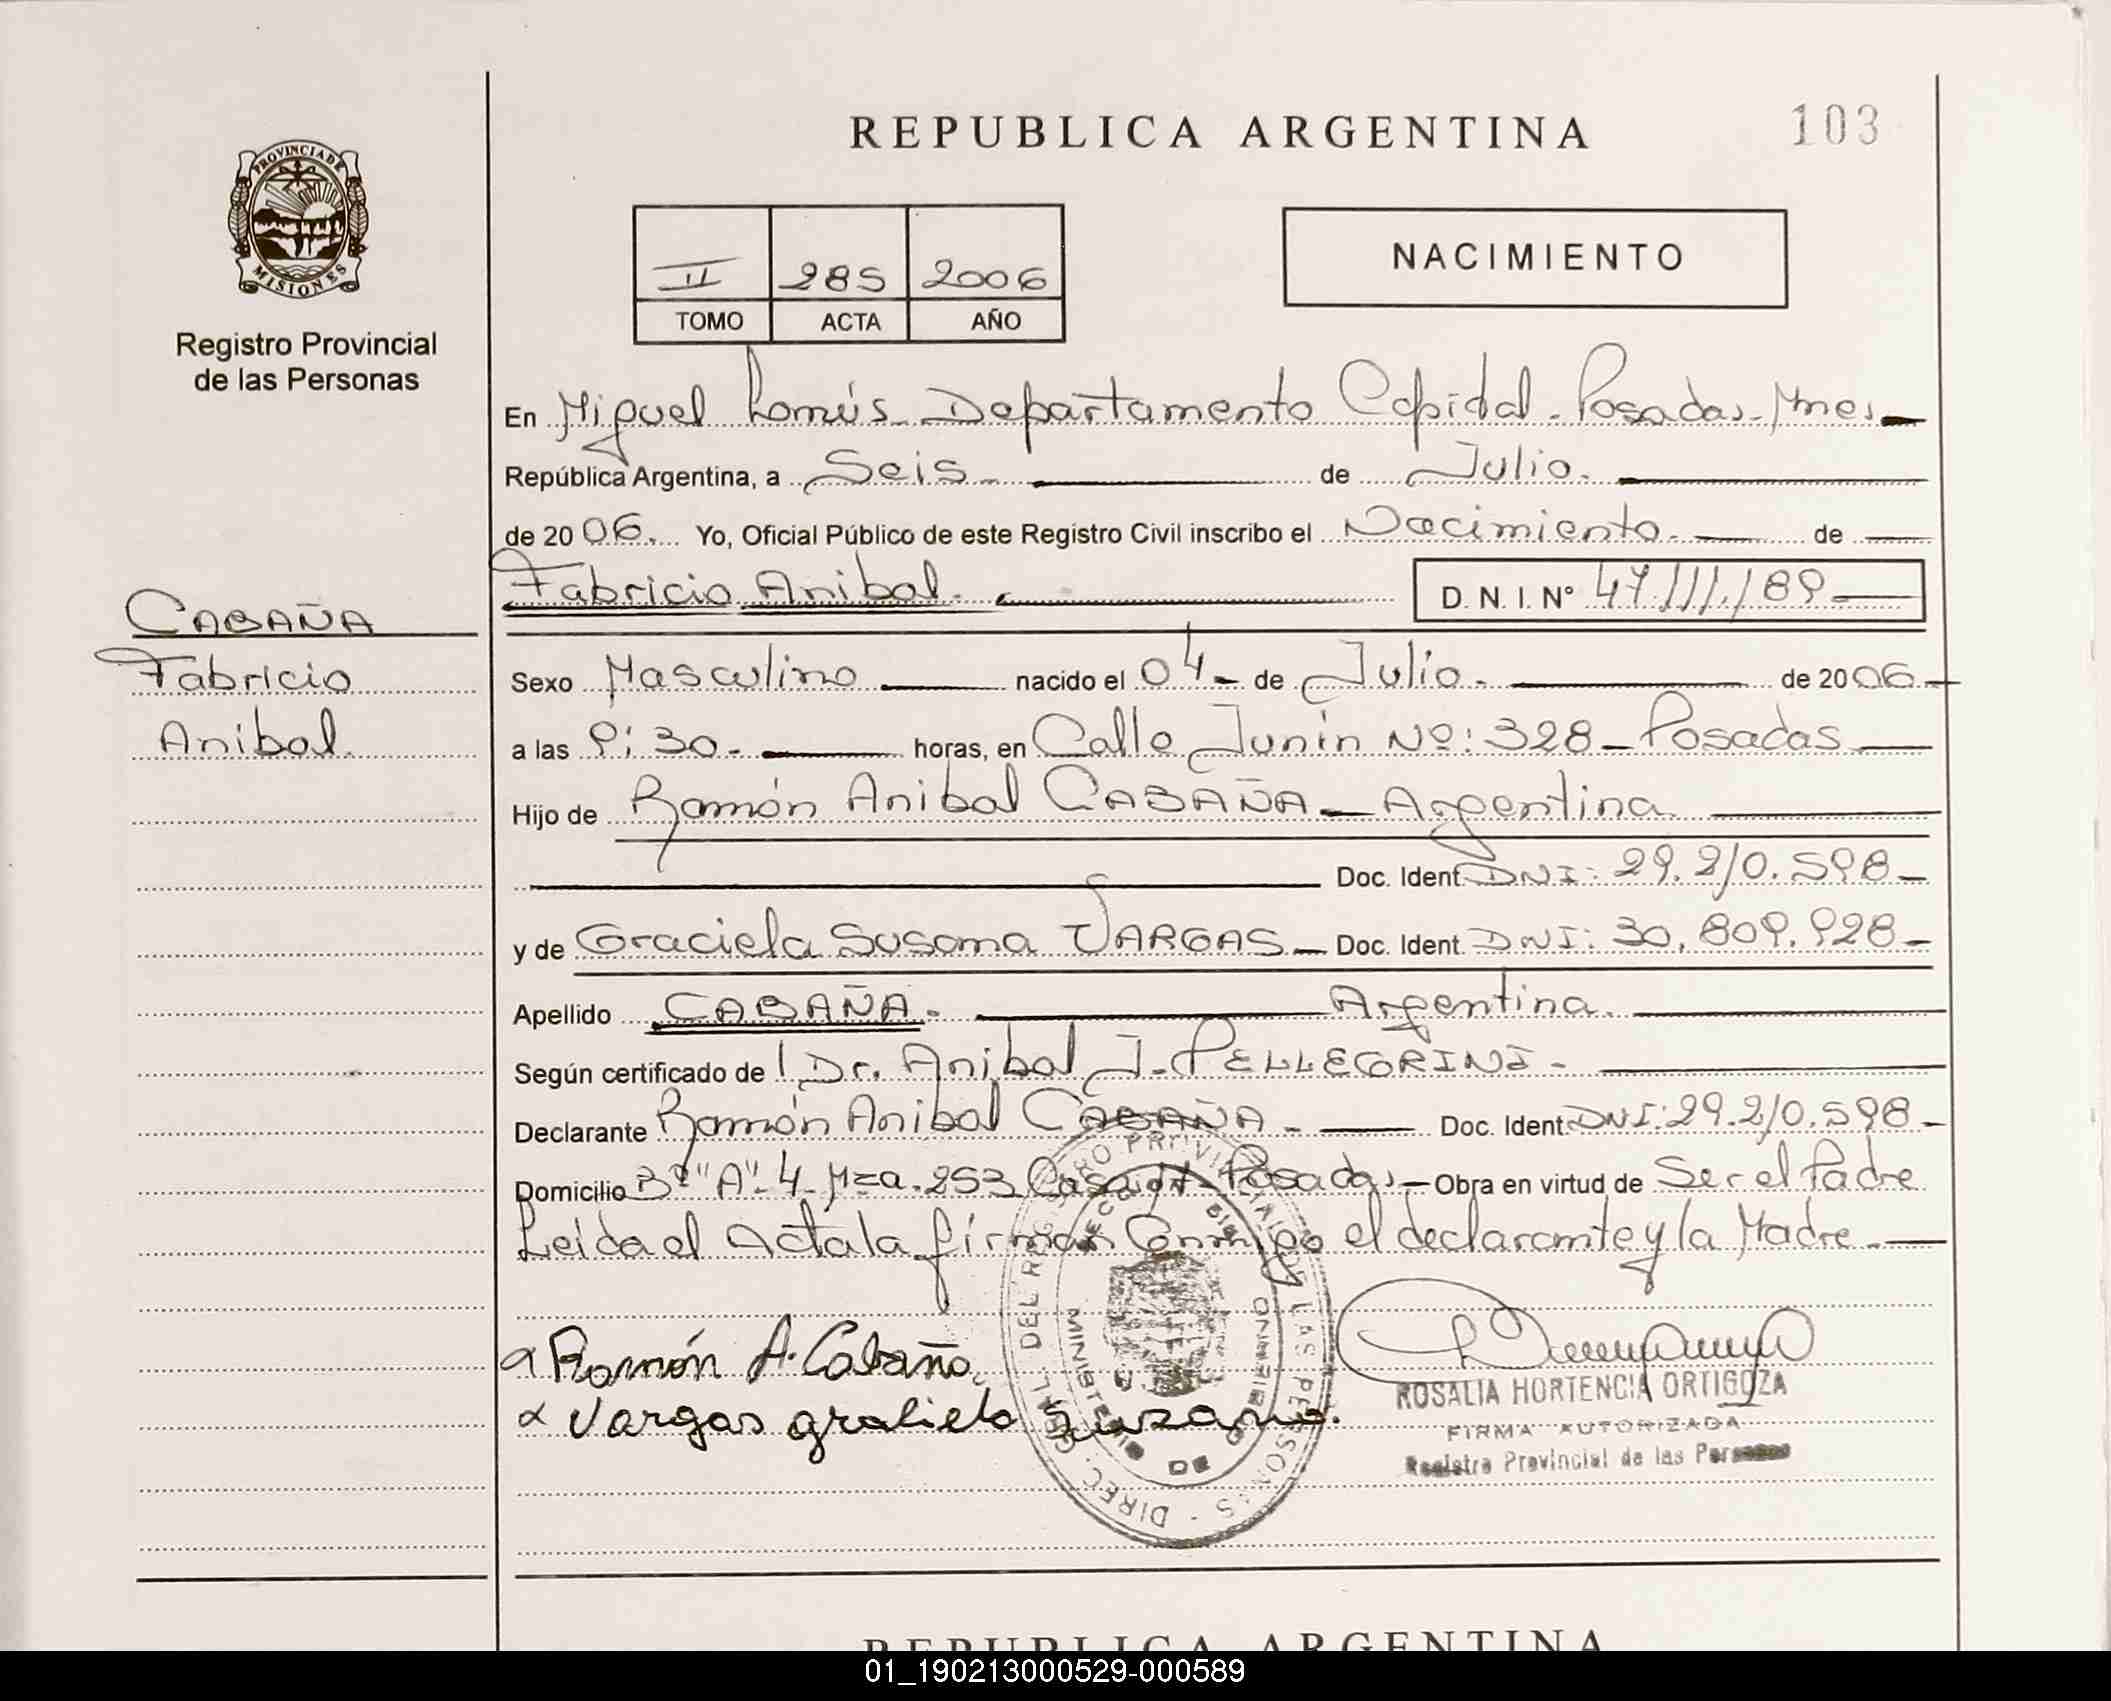 REPUBLICA ARGENTINA
103
PROVINCIA DE
MISIONES
Registro Provincial
de las Personas
II 285 2006
TOMO ACTA AÑO
NACIMIENTO
En Miguel Lanús - Departamento Capital - Posadas - Mnes
República Argentina, a Seis de Julio.
de 2006. Yo, Oficial Público de este Registro Civil inscribo el Nacimiento de
Fabricio Anibal. D. N. I. N° 47.111.189
CABAÑA
Fabricio
Anibal.
Sexo Masculino nacido el 04 de Julio de 2006
a las 9:30 horas, en Calle Junín Nº: 328 - Posadas
Hijo de Ramón Anibal CABAÑA - Argentina
Doc. Ident. DNI: 29.210.598
y de Graciela Susana VARGAS - Doc. Ident. DNI: 30.809.928
Apellido CABAÑA. Argentina.
Según certificado de Dr. Anibal J. PELLEGRINI
Declarante Ramón Anibal CABAÑA Doc. Ident. DNI: 29.210.598
Domicilio Bº "A" 4 Mza. 253 Casa Posadas Obra en virtud de Ser el Padre
Leida el Acta la firman Conmigo el declarante y la Madre
Ramón A. Cabaña
Vargas graliela Suzana.
ROSALIA HORTENCIA ORTIGOZA
FIRMA AUTORIZADA
Registro Provincial de las Personas
REPUBLICA ARGENTINA
01_190213000529-000589